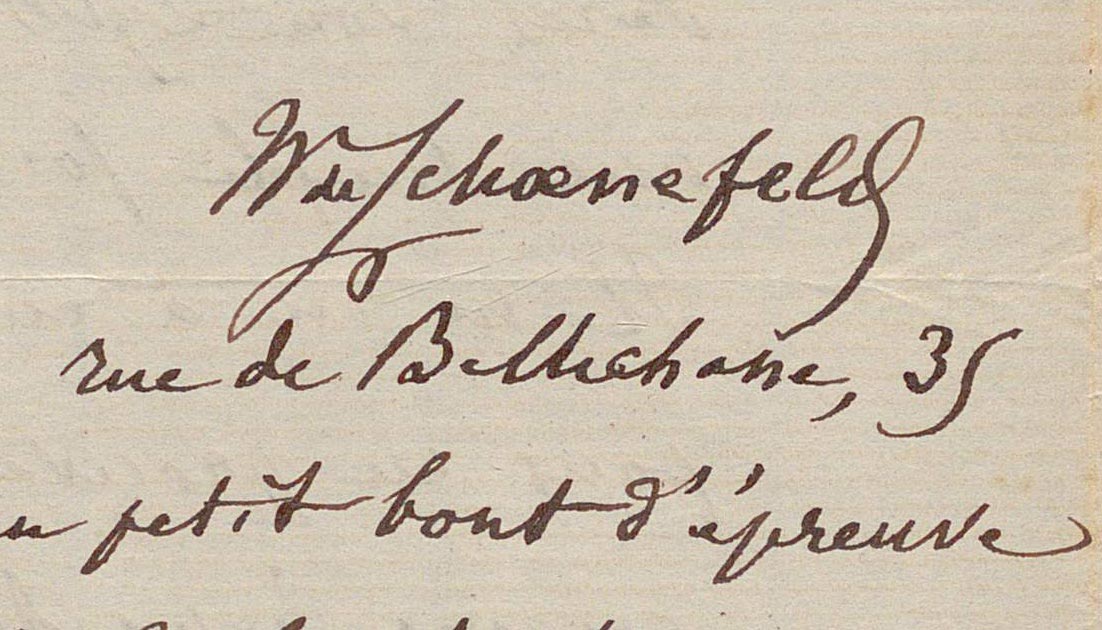 W de Schœnefeld
rue de Bellechasse, 35
petit bout d'épreuve